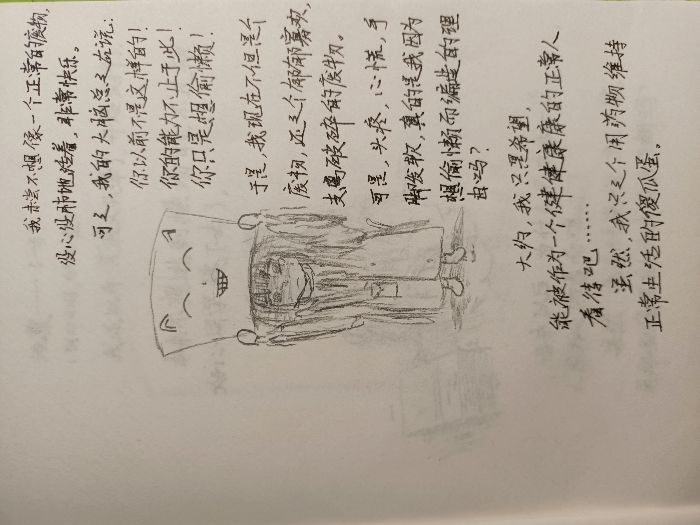 我未尝不想像一个正常的废物,
没心没肺地活着,非常快乐。
可是,我的大脑总是在说:
你以前不是这样的!
你的能力不止于此!
你只是想偷懒!
于是,我现在不但是个
废物,还是个郁郁寡欢,
支离破碎的废物。
可是,头疼,心慌,手
脚发软,真的是我因为
想偷懒而编造的理
由吗?
大约,我只是希望,
能被作为一个健健康康的正常人
看待吧……
虽然,我只是个用药物维持
正常生活的傻瓜蛋。